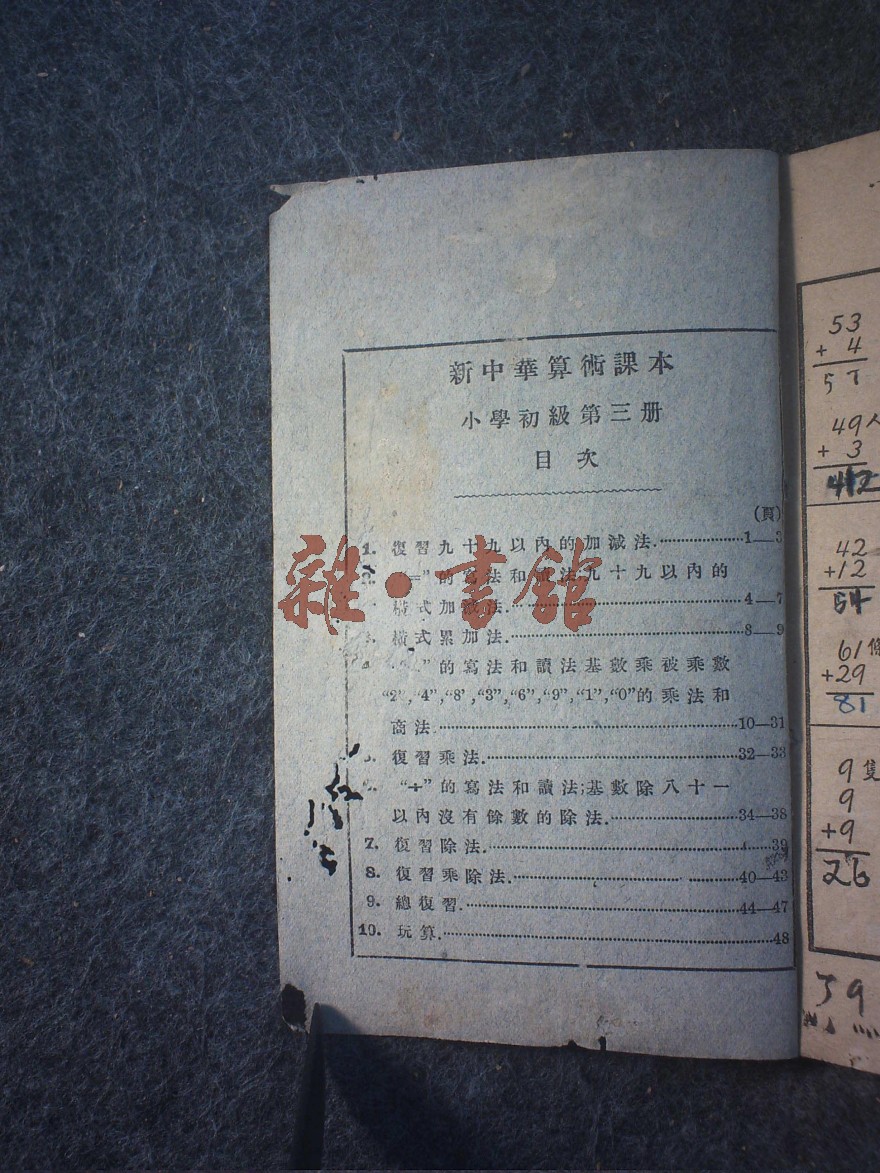 新中華算術課本
小學初級第三册
目次
(頁)
1. 復習九十九以內的加減法.……1—3
2. “=”的寫法和讀法;九十九以內的
橫式加減法.……4—7
橫式累加法.……8—9
4. 的寫法和讀法基數乘被乘數
“2”,“4”,“8”,“3”,“6”,“9”,“1”,“0”的乘法和
商法.……10—31
復習乘法.……32—33
“÷”的寫法和讀法;基數除八十一
以內沒有餘數的除法.……34—38
7. 復習除法.……39
8. 復習乘除法.……40—43
9. 總復習.……44—47
10. 玩算.……48
雜·書館
53
+ 4
57
49人
+ 3
42
+12
54
61條
+29
81
9隻
9
+9
26
39